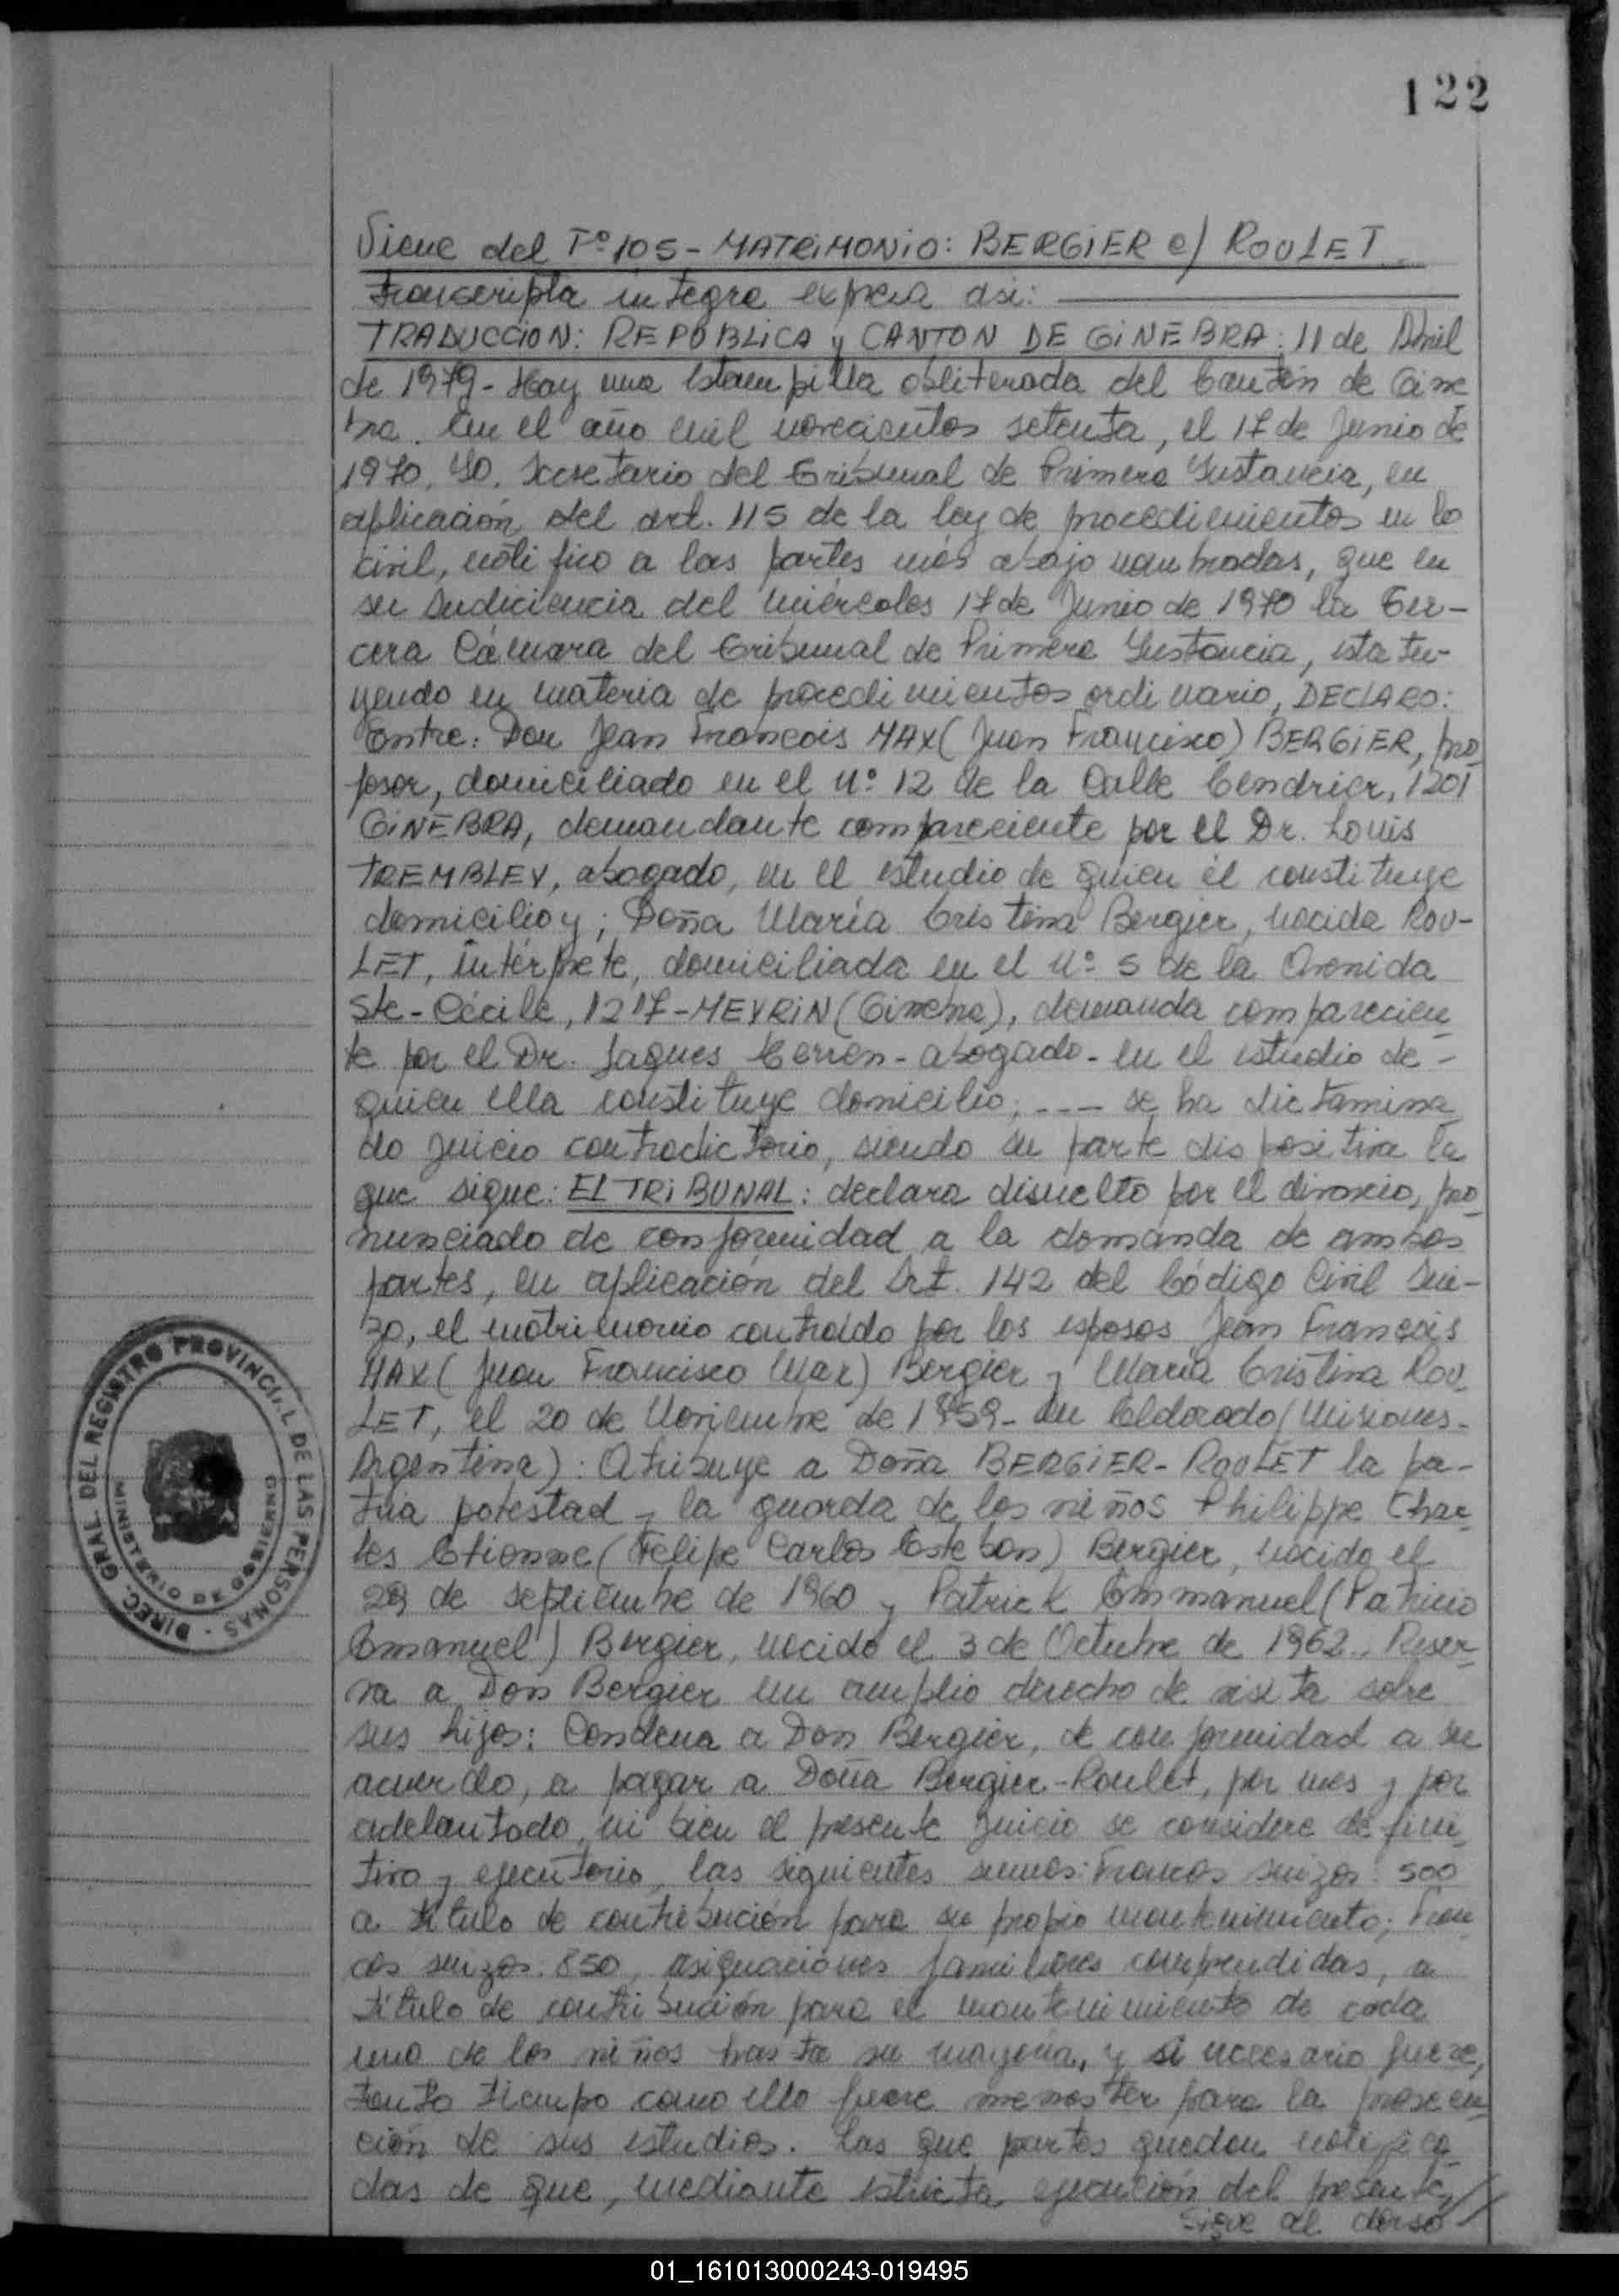 122
Viene del Tº 105 - MATRIMONIO: BERGIER c/ ROULET
transcripta íntegra expresa así:
TRADUCCION: REPÚBLICA y CANTON DE GINEBRA: 11 de Abril
de 1979 - Hay una estampilla obliterada del Cantón de Gine
bra. En el año mil novecientos setenta, el 17 de Junio de
1970. YO, Secretario del Tribunal de Primera Instancia, en
aplicación del art. 115 de la ley de procedimientos en lo
civil, notifico a las partes más abajo nombradas, que en
su audiciencia del miércoles 17 de Junio de 1970 la Ter-
cera Cámara del Tribunal de Primera Instancia, estatu-
yendo en materia de procedimientos ordinario, DECLARO:
Entre: Don Jean Francois MAX (Juan Francisco) BERGIER, pro
fesor, domiciliado en el Nº 12 de la Calle Cendrier, 1201
GINEBRA, demandante compareciente por el Dr. Louis
TREMBLEY, abogado, en el estudio de quien él constituye
domicilio y; Doña María Cristina Bergier, nacida ROU-
LET, intérprete, domiciliada en el Nº 5 de la Avenida
Ste-Cécile, 1217-MEYRIN (Ginebra), demanda comparecien
te por el Dr. Jaques - abogado - en el estudio de -
quien ella constituye domicilio; --- se ha dictamina
do juicio contradictorio, siendo su parte dispositiva la
que sigue: EL TRIBUNAL: declara disuelto por el divorcio, pro
nunciado de conformidad a la demanda de ambos
partes, en aplicación del Art. 142 del Código Civil Sui-
zo, el matrimonio contraído por los esposos Jean Francois
MAX (Juan Francisco Max) Bergier y María Cristina ROU
LET, el 20 de Noviembre de 1959 - en Eldorado (Misiones -
Argentina): Atribuye a Doña BERGIER-ROULET la pa-
tria potestad y la guarda de los niños Philippe Char
les Etienne (Felipe Carlos Esteban) Bergier, nacido el
29 de septiembre de 1960 y Patrick Emmanuel (Patricio
Emanuel) Bergier, nacido el 3 de Octubre de 1962. Reser
va a Don Bergier un amplio derecho de visita sobre
sus hijos: Condena a Don Bergier, de conformidad a su
acuerdo, a pagar a Doña Bergier-Roulet, por mes y por
adelantado, ni bien el presente juicio se considere defini
tivo y ejecutorio, las siguientes sumas: Francos suizos: 500
a título de contribución para su propio mantenimiento; Fran
cos suizos: 850, asignaciones familiares comprendidas, a
título de contribución para el mantenimiento de cada
uno de los niños hasta su mayoría, y si necesario fuere,
tanto tiempo como ello fuere menester para la prosecu
ción de sus estudios. Las que partes quedan notifica
das de que, mediante estricta ejecución del presente,//
sigue al dorso
DIREC. GRAL DEL REGISTRO PROVINCIAL DE LAS PERSONAS
MINISTERIO DE GOBIERNO
01_161013000243-019495